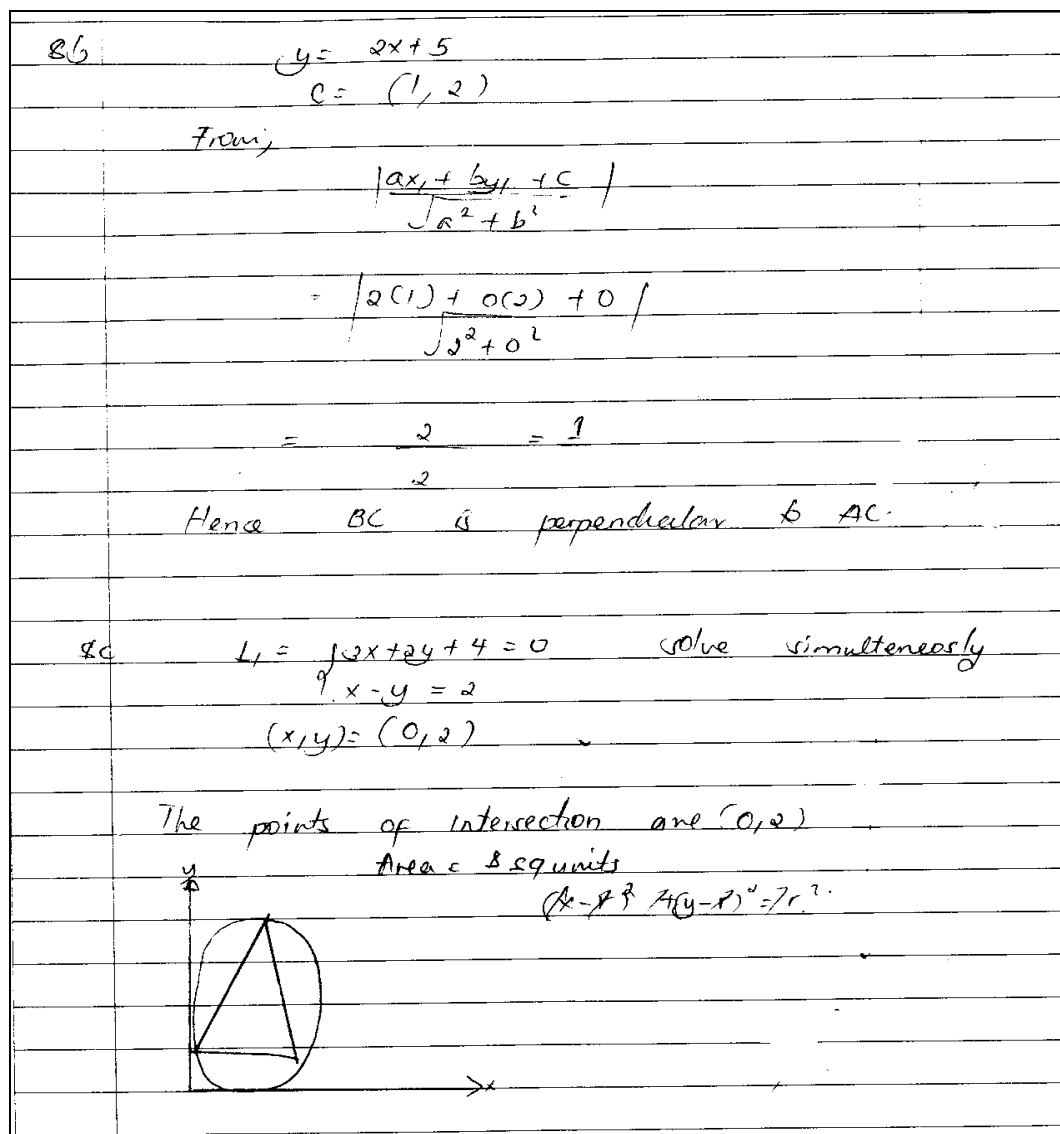 8b y = 2x + 5
C = (1, 2)
From,
|ax₁ + by₁ + c|
√a² + b²
= |2(1) + 0(2) + 0|
√2² + 0²
= 2 = 1
2
Hence BC is perpendicular to AC.
8c L₁ = {2x + 2y + 4 = 0 solve simulteneosly
x - y = 2
(x, y) = (0, 2)
The points of intersection are (0, 2)
y
Area = 8 sq units
x